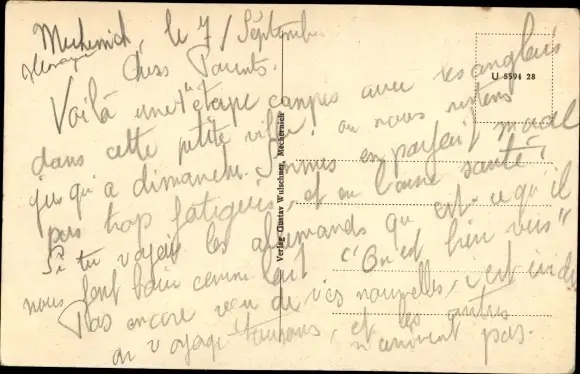 Mechernich, le 7 / Septembre
Chers Parents.
Voilà une 1e étape campés avec les anglais
dans cette petite ville ou nous restons
jusqu'à dimanche. Sommes en parfait moral
pas trop fatigués, et en bonne santé.
Si tu voyais les allemands qu'est-ce qu'il
nous font boire comme lait "On est bien vus"
Pas encore reçu de vos nouvelles, c'est
on voyage toujours, et les autres
n'arrivent pas.
U 5594 28
Verlag Gustav Wulschner, Mechernich